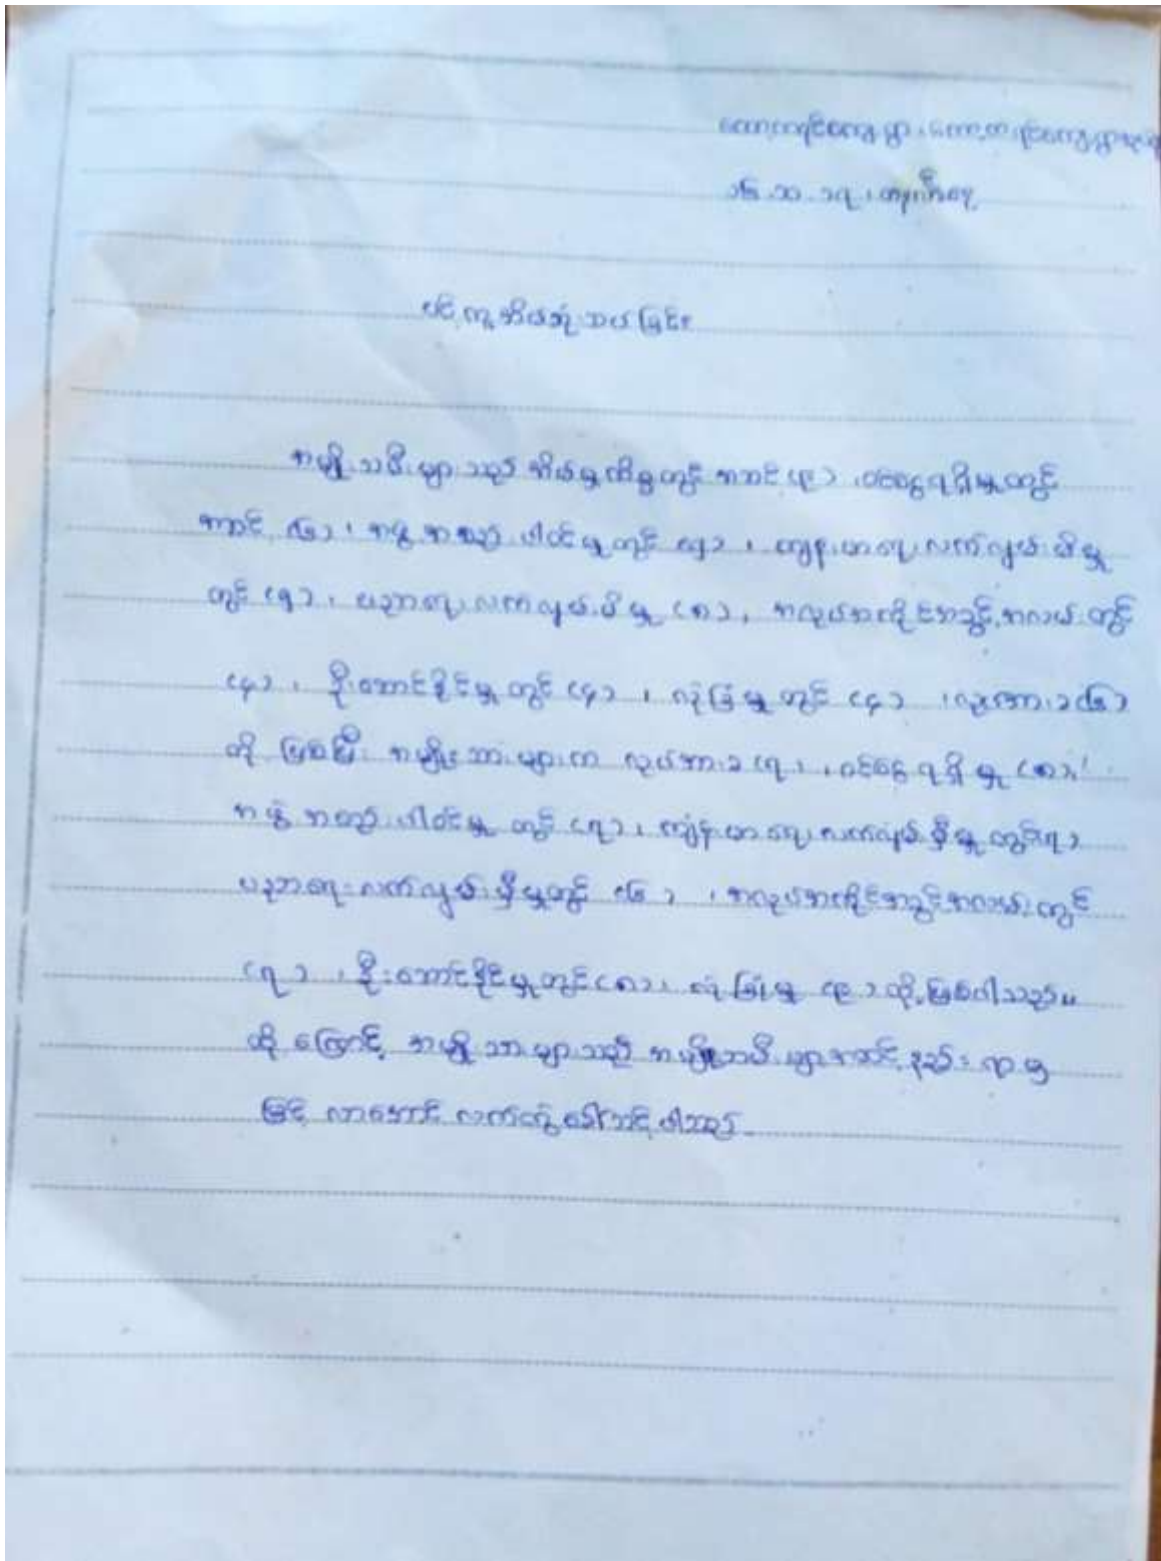 ၁၆.၁၁.၁၇၊
ပင့်ကူအိမ်ဘုံသယ်ခြင်း
အမျိုးသမီးများသည် အိမ်မှုကိစ္စတွင် အဆင့် (၉)၊ ဝင်ငွေရရှိမှုတွင်
အဆင့် (၆)၊ အဖွဲ့အစည်းပါဝင်မှုတွင် ကျန်းမာရေးလက်လှမ်းမီမှု
တွင် ပညာရေးလက်လှမ်းမီမှု (၈)၊ အလုပ်အကိုင်အခွင့်အလမ်းတွင်
(၄)၊ ဦးဆောင်နိုင်မှုတွင် (၄)၊ လုံခြုံမှုတွင် (၄)၊
တို့ ဖြစ်ပြီး အမျိုးသားများက လုပ်အားခ (၇)၊ ဝင်ငွေရရှိမှု (၈)၊
အဖွဲ့အစည်းပါဝင်မှုတွင် (၇)၊ ကျန်းမာရေးလက်လှမ်းမှီမှုတွင် (၇)
ပညာရေးလက်လှမ်းမှီမှုတွင် (၆)၊ အလုပ်အကိုင်အခွင့်အလမ်းတွင်
(၇)၊ ဦးဆောင်နိုင်မှုတွင် (၈)၊ လုံခြုံမှု (၉) တို့ ဖြစ်ပါသည်။
ထို့ကြောင့် အမျိုးသားများသည် အမျိုးသမီးများအဆင့်နည်းတူ
မြင့်လာအောင် လက်တွဲခေါ်သင့်ပါသည်